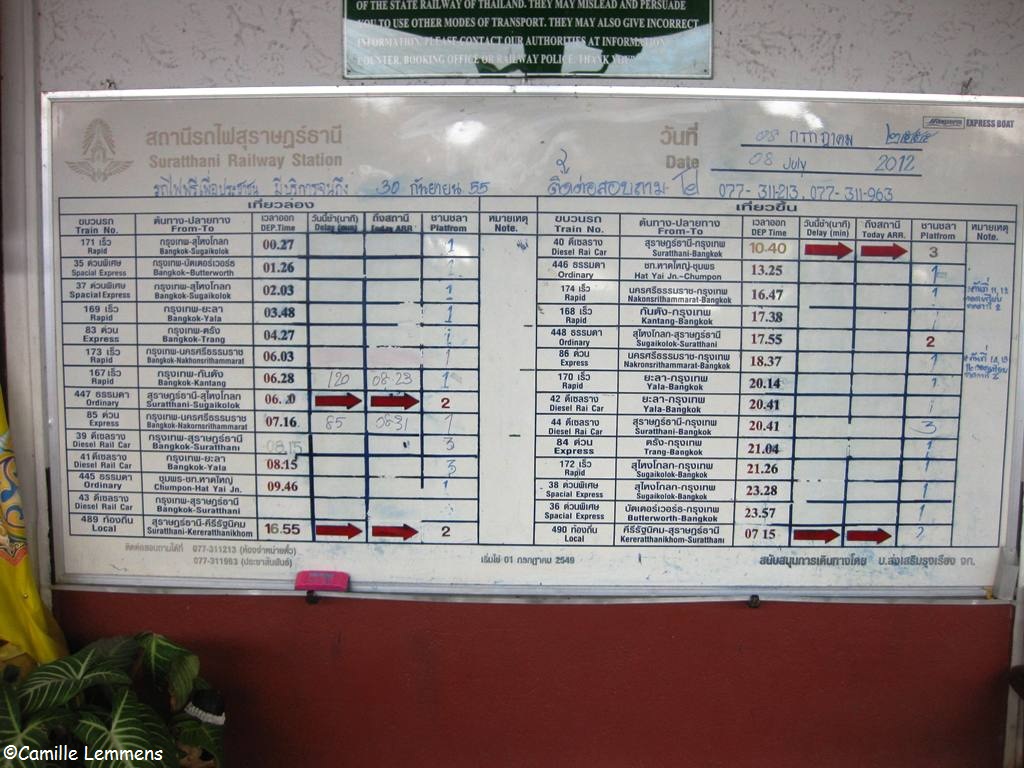 OF THE STATE RAILWAY OF THAILAND. THEY MAY MISLEAD AND PERSUADE
YOU TO USE OTHER MODES OF TRANSPORT. THEY MAY ALSO GIVE INCORRECT
INFORMATION. PLEASE CONTACT OUR AUTHORITIES AT INFORMATION
COUNTER, BOOKING OFFICE OR RAILWAY POLICE. THANK YOU
EXPRESS BOAT
สถานีรถไฟสุราษฎร์ธานี
Suratthani Railway Station
วันที่ 08 กรกฎาคม ๒๕๕๕
Date 08 July 2012
รถไฟฟรีเพื่อประชาชน มีบริการจนถึง 30 กันยายน 55
ติดต่อสอบถาม Tel 077-311213, 077-311-963
เที่ยวล่อง
ขบวนรถ ต้นทาง-ปลายทาง เวลาออก วันนี้ช้า(นาที) ถึงสถานี ชานชลา หมายเหตุ
Train No. From-To DEP.Time Delay (min) Today ARR. Platfrom Note.
171 เร็ว กรุงเทพ-สุไหงโกลก 00.27 1
Rapid Bangkok-Sugaikolok
35 ด่วนพิเศษ กรุงเทพ-บัตเตอร์เวอร์ธ 01.26 1
Spacial Express Bangkok-Butterworth
37 ด่วนพิเศษ กรุงเทพ-สุไหงโกลก 02.03 1
Spacial Express Bangkok-Sugaikolok
169 เร็ว กรุงเทพ-ยะลา 03.48 1
Rapid Bangkok-Yala
83 ด่วน กรุงเทพ-ตรัง 04.27 1
Express Bangkok-Trang
173 เร็ว กรุงเทพ-นครศรีธรรมราช 06.03 1
Rapid Bangkok-Nakhonsrithammarat
167 เร็ว กรุงเทพ-กันตัง 06.28 120 08.23 1
Rapid Bangkok-Kantang
447 ธรรมดา สุราษฎร์ธานี-สุไหงโกลก 2
Ordinary Suratthani-Sugaikolok
85 ด่วน กรุงเทพ-นครศรีธรรมราช 07.16 85 0831 1
Express Bangkok-Nakornsrithammarat
39 ดีเซลราง กรุงเทพ-สุราษฎร์ธานี 08.15 3
Diesel Rail Car Bangkok-Suratthani
41 ดีเซลราง กรุงเทพ-ยะลา 08.15 3
Diesel Rail Car Bangkok-Yala
445 ธรรมดา ชุมพร-ชท.หาดใหญ่ 09.46 1
Ordinary Chumpon-Hat Yai Jn.
43 ดีเซลราง กรุงเทพ-สุราษฎร์ธานี
Diesel Rail Car Bangkok-Suratthani
489 ท้องถิ่น สุราษฎร์ธานี-คีรีรัฐนิคม 16.55 2
Local Suratthani-Kereratthanikhom
เที่ยวขึ้น
ขบวนรถ ต้นทาง-ปลายทาง เวลาออก วันนี้ช้า(นาที) ถึงสถานี ชานชลา หมายเหตุ
Train No. From-To DEP Time Delay (min) Today ARR. Platfrom Note.
40 ดีเซลราง สุราษฎร์ธานี-กรุงเทพ 10.40 3
Diesel Rai Car Suratthani-Bangkok
446 ธรรมดา ชท.หาดใหญ่-ชุมพร 13.25 1
Ordinary Hat Yai Jn.-Chumpon
174 เร็ว นครศรีธรรมราช-กรุงเทพ 16.47 1
Rapid Nakonsrithammarat-Bangkok
168 เร็ว กันตัง-กรุงเทพ 17.38 1
Rapid Kantang-Bangkok
448 ธรรมดา สุไหงโกลก-สุราษฎร์ธานี 17.55 2
Ordinary Sugaikolok-Suratthani
86 ด่วน นครศรีธรรมราช-กรุงเทพ 18.37 1
Express Nakronsrithammarat-Bangkok
170 เร็ว ยะลา-กรุงเทพ 20.14 1
Rapid Yala-Bangkok
42 ดีเซลราง ยะลา-กรุงเทพ 20.41 1
Diesel Rai Car Yala-Bangkok
44 ดีเซลราง สุราษฎร์ธานี-กรุงเทพ 20.41 3
Diesel Rai Car Suratthani-Bangkok
84 ด่วน ตรัง-กรุงเทพ 21.04 1
Express Trang-Bangkok
172 เร็ว สุไหงโกลก-กรุงเทพ 21.26 1
Rapid Sugaikolok-Bangkok
38 ด่วนพิเศษ สุไหงโกลก-กรุงเทพ 23.28 1
Spacial Express Sugaikolok-Bangkok
36 ด่วนพิเศษ บัตเตอร์เวอร์ธ-กรุงเทพ 23.57 1
Spacial Express Butterworth-Bangkok
490 ท้องถิ่น คีรีรัฐนิคม-สุราษฎร์ธานี 07 15 2
Local Kereratthanikhom-Suratthani
ติดต่อสอบถามได้ที่ 077-311213 (ห้องจำหน่ายตั๋ว)
077-311963 (ประชาสัมพันธ์)
เริ่มใช้ 01 กรกฎาคม 2549
สนับสนุนการเดินทางโดย บ.ส่งเสริมรุ่งเรือง จก.
©Camille Lemmens